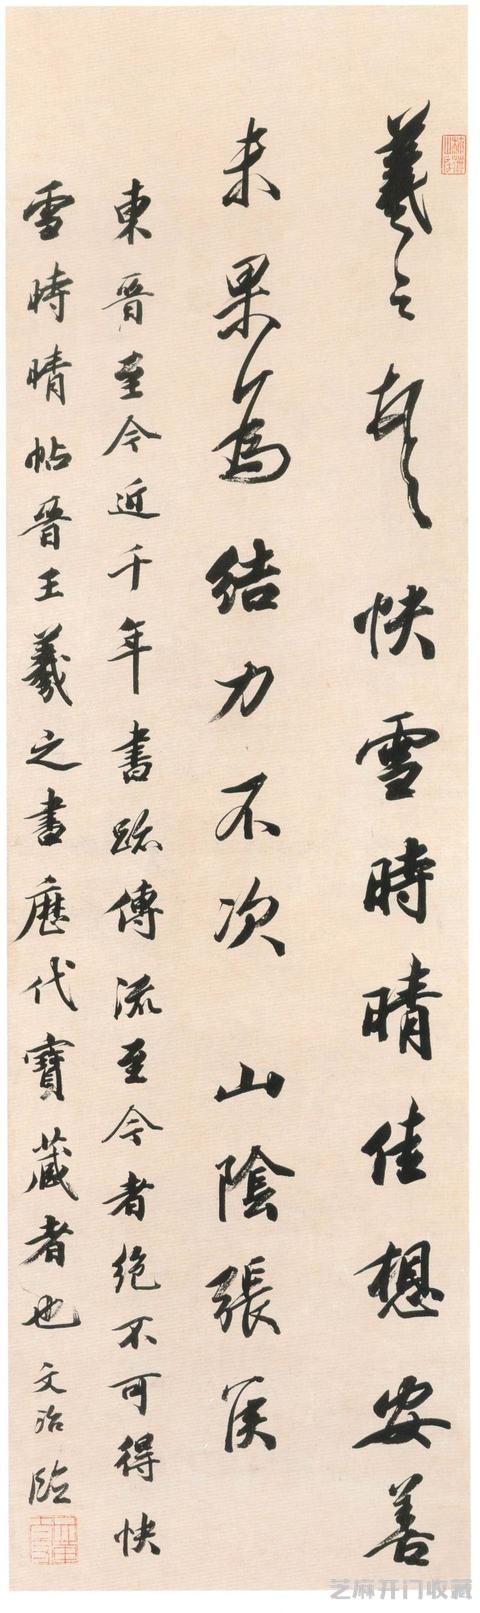 羲之頓首快雪時晴佳想安善
未果為結力不次 山陰張侯
東晉至今近千年書跡傳流至今者絶不可得快
雪時晴帖晉王羲之書歷代寶藏者也 文治臨
芝麻开门收藏